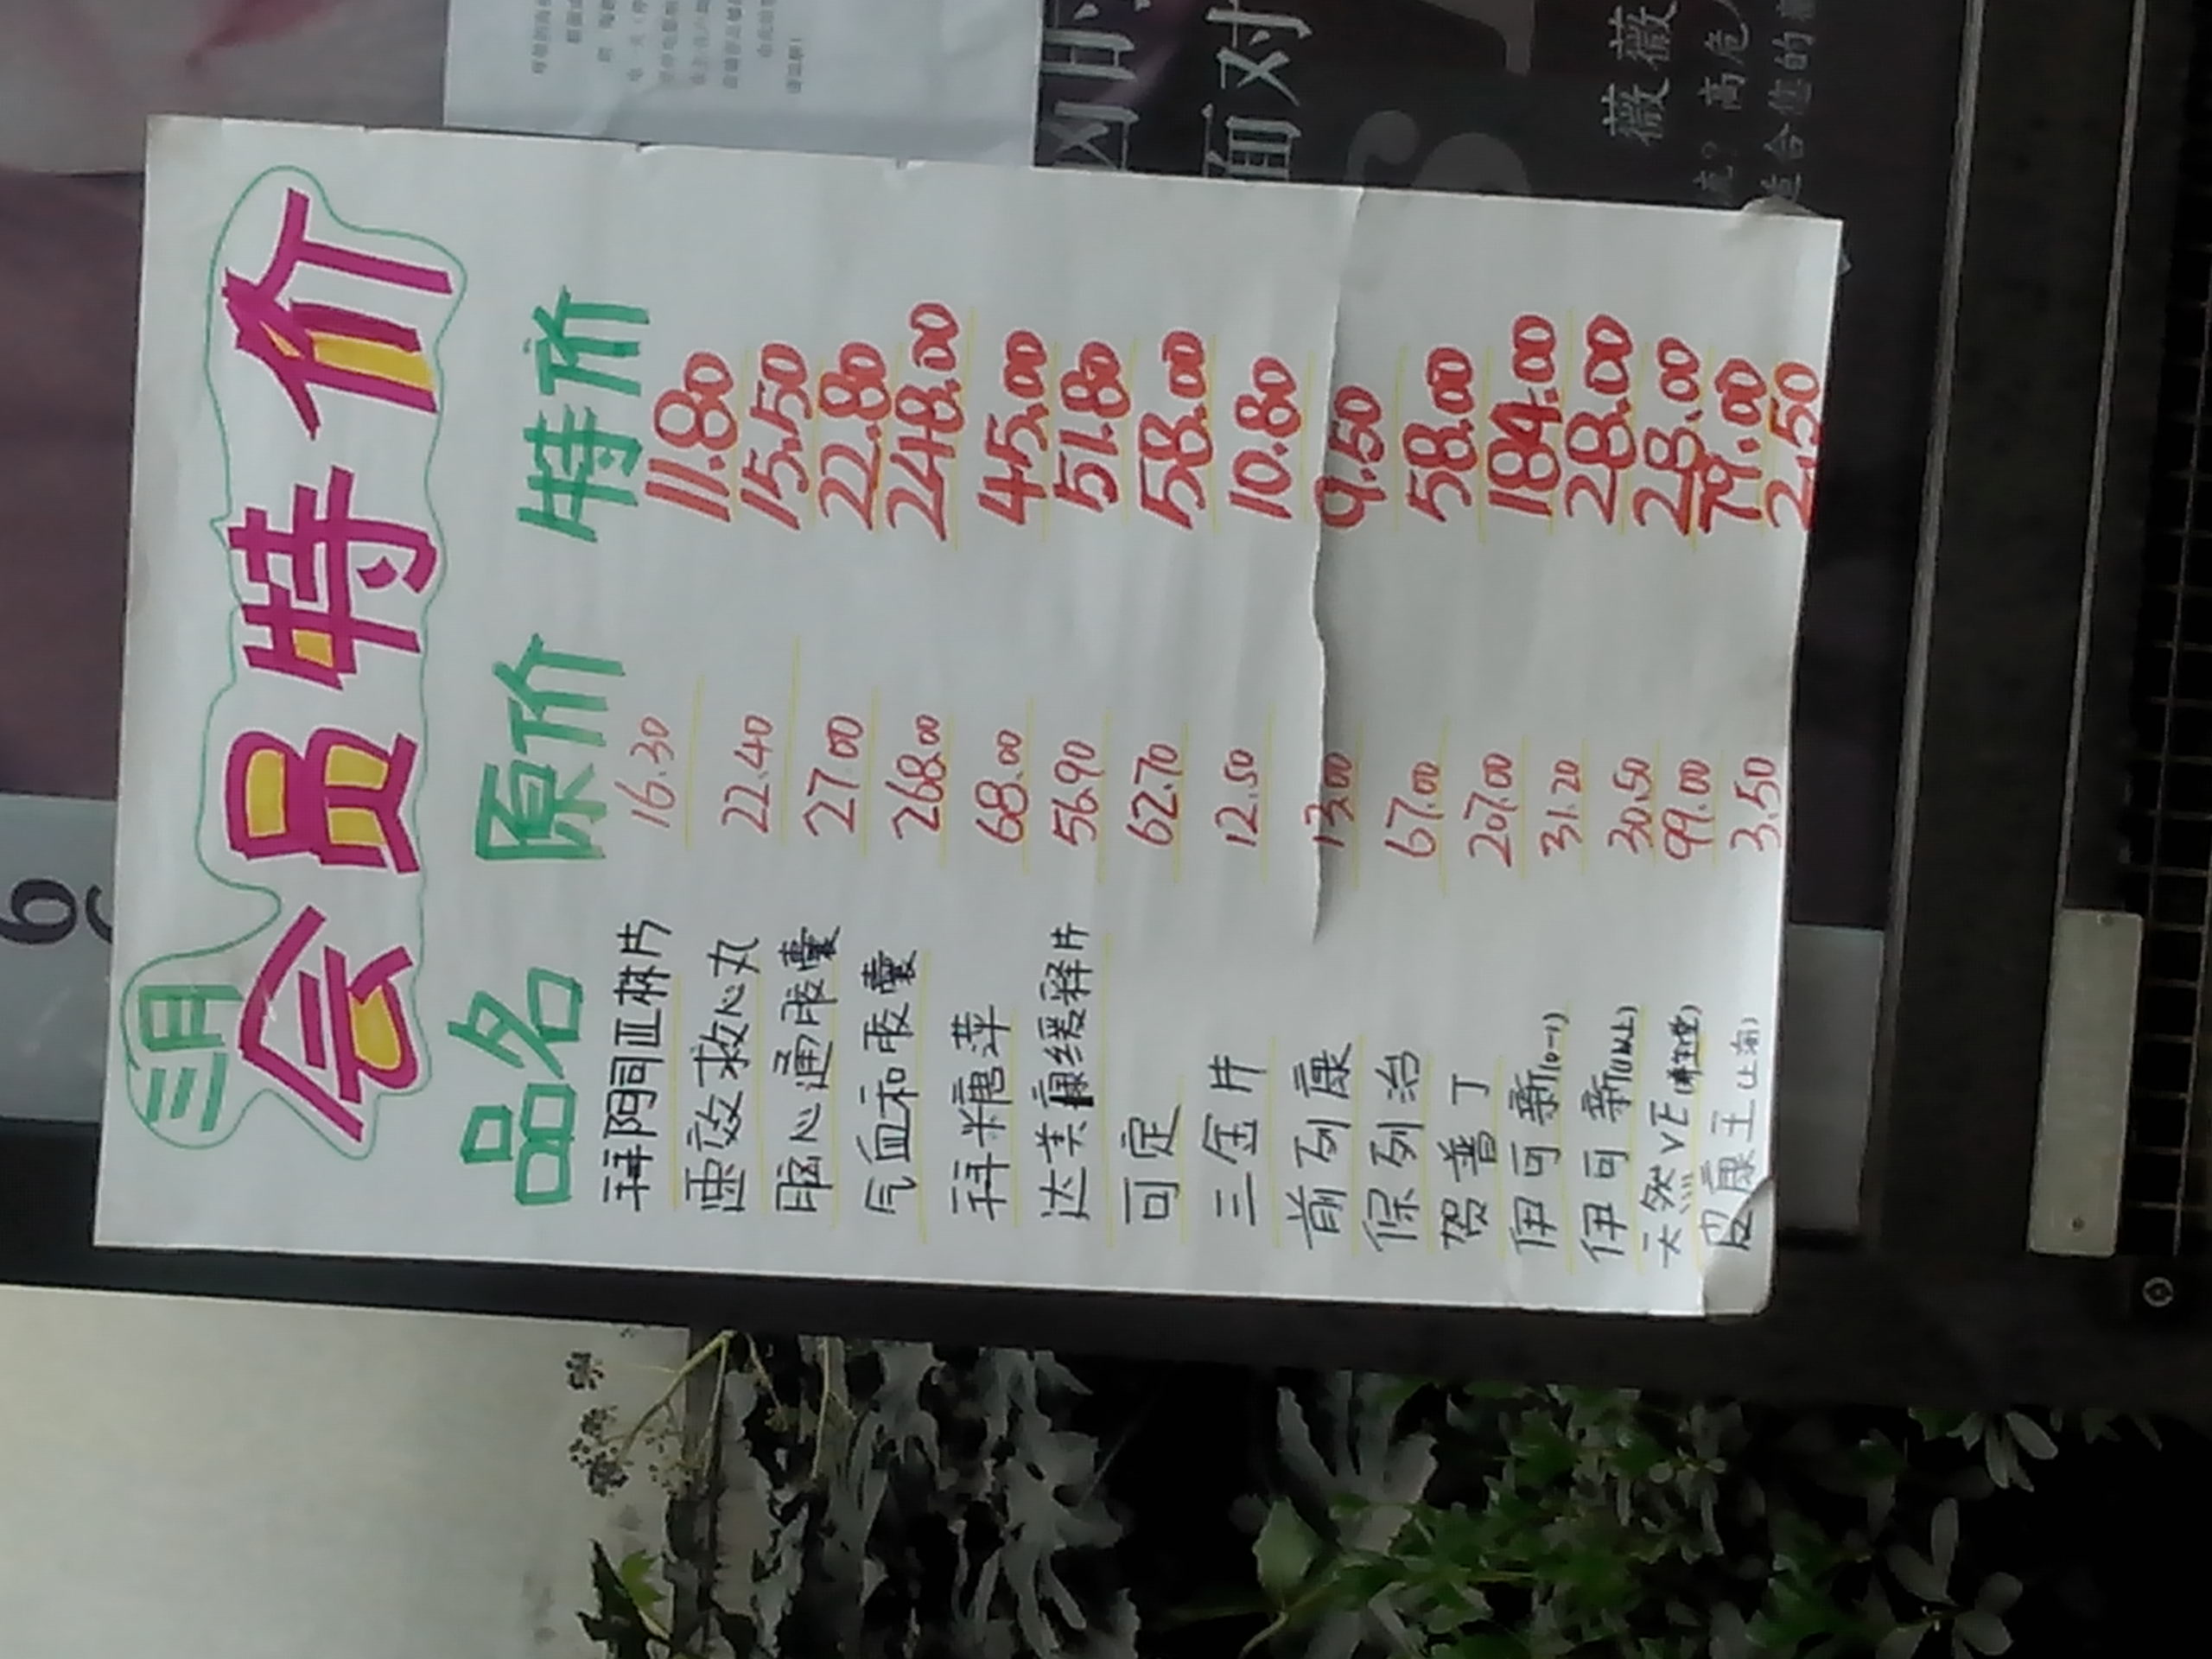 三月
会员特价
品名 原价 特价
拜阿司匹林片 16.30 11.80
速效救心丸 22.40 15.50
脑心通胶囊 27.00 22.80
气血和胶囊 268.00 248.00
拜糖苹 68.00 45.00
达美康缓释片 56.90 51.80
可定 62.70 58.00
三金片 12.50 10.80
前列康 13.00 9.50
保列治 67.00 58.00
贺普丁 207.00 184.00
伊可新(0-1) 31.20 28.00
伊可新(1以上) 30.50 28.00
天然VE 99.00 79.00
皮康王(上海) 3.50 2.50
面对
薇薇
高危
适合您的